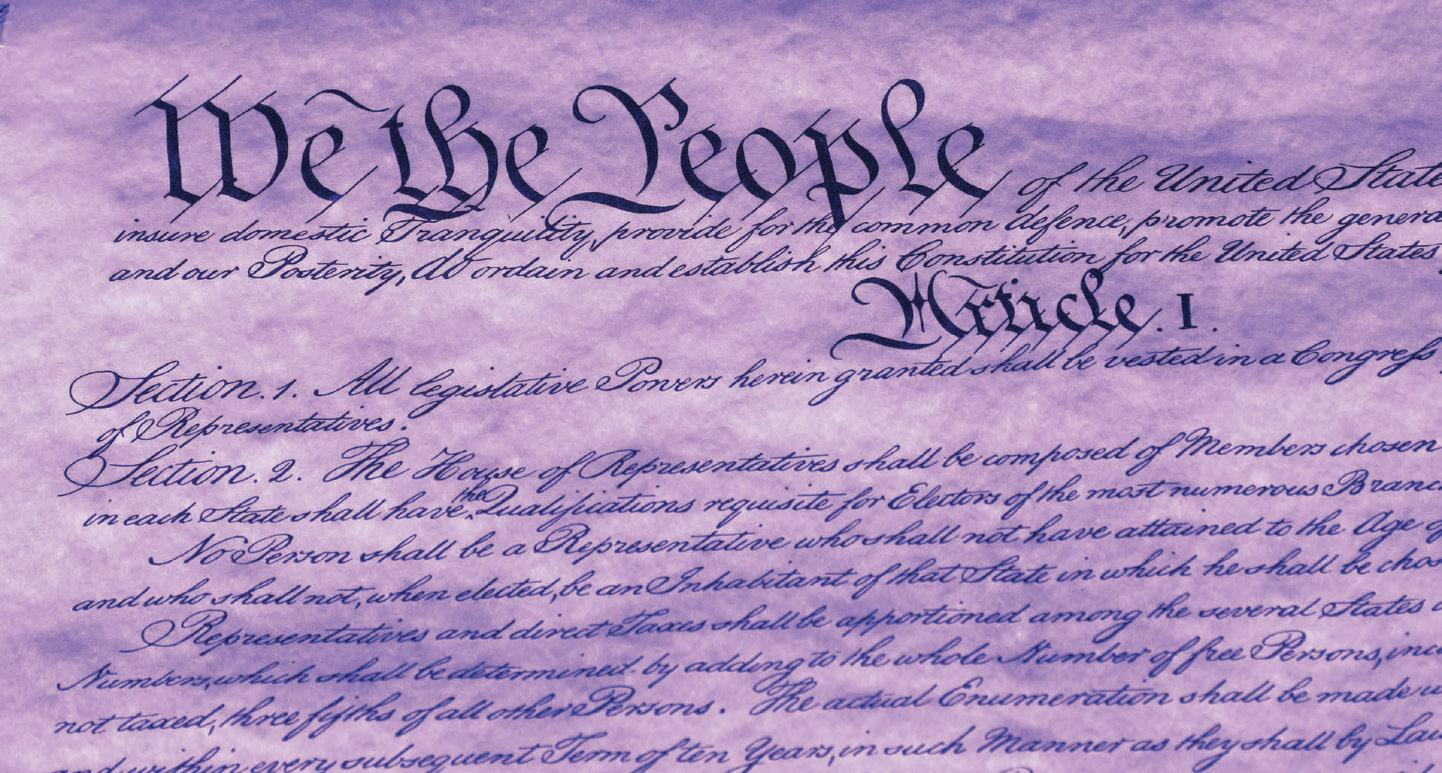 We the People of the United State
insure domestic Tranquility, provide for the common defence, promote the genera
and our Posterity, do ordain and establish this Constitution for the United States
Article. I.
Section. 1. All legislative Powers herein granted shall be vested in a Congress
of Representatives.
Section. 2. The House of Representatives shall be composed of Members chosen
in each State shall have the Qualifications requisite for Electors of the most numerous Branc
No Person shall be a Representative who shall not have attained to the Age
and who shall not, when elected, be an Inhabitant of that State in which he shall be chos
Representatives and direct Taxes shall be apportioned among the several States
Numbers, which shall be determined by adding to the whole Number of free Persons, inc
not taxed, three fifths of all other Persons. The actual Enumeration shall be made
and within every subsequent Term of ten Years, in such Manner as they shall by Law